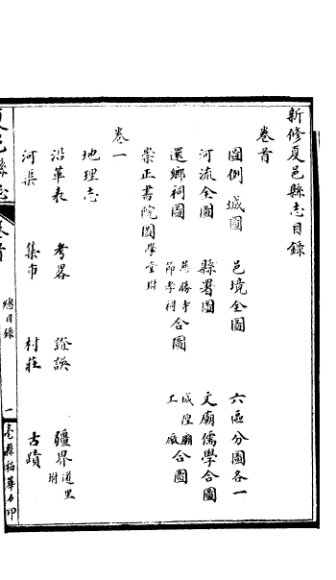 新修夏邑縣志目錄
卷首
圖例 城圖 邑境全圖 六區分圖各一
河流全圖 縣署圖 文廟儒學合圖
還鄉祠圖 慈勝寺節孝祠合圖 城隍廟工廠合圖
崇正書院圖學堂附
卷一
地理志
沿革表 考畧 證誤 疆界道里附
河渠 集市 村莊 古蹟
夏邑縣志 卷首 總目錄 一 亳縣柏華石印